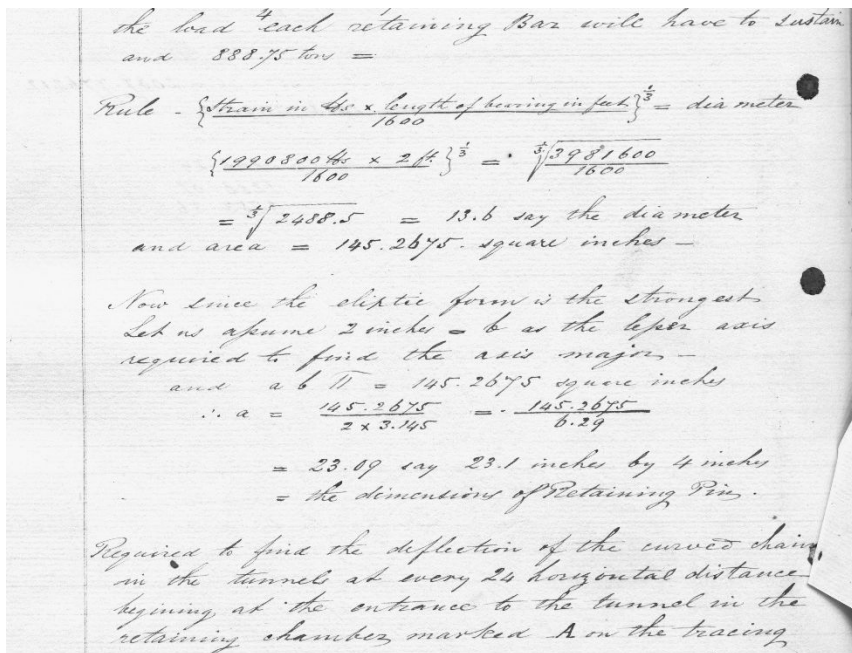 the load each retaining Bar will have to sustain
and 888.75 tons =
Rule - {Strain in lbs x length of bearing in feet / 1600}^1/3 = diameter
{1990800 lbs x 2 ft. / 1600}^1/3 = ∛3981600 / 1600
= ∛2488.5 = 13.6 say the diameter
and area = 145.2675. square inches -
Now since the eliptic form is the strongest
Let us assume 2 inches = b as the lesser axis
required to find the axis major -
and a b π = 145.2675 square inches
∴ a = 145.2675 / 2 x 3.145 = 145.2675 / 6.29
= 23.09 say 23.1 inches by 4 inches
= the dimensions of Retaining Pin.
Required to find the deflection of the curved chain
in the tunnels at every 24 horizontal distance
begining at the entrance to the tunnel in the
retaining chamber marked A on the tracing